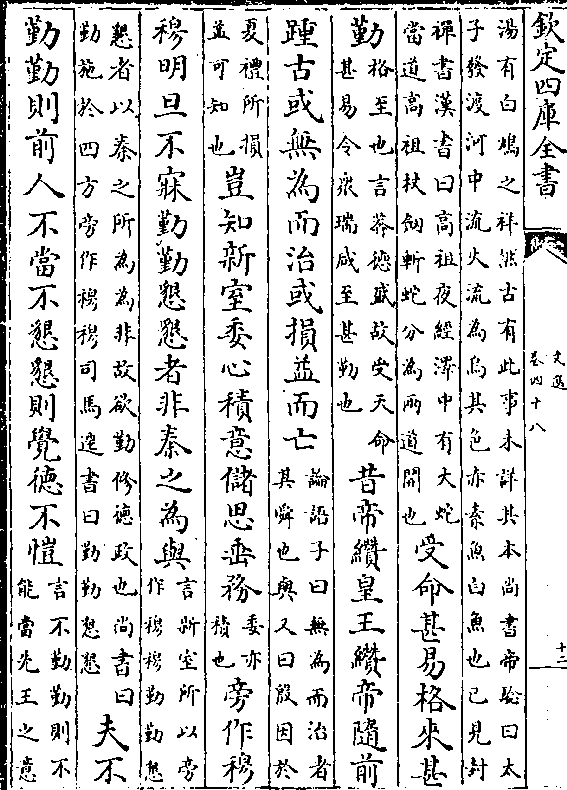 欽定四庫全書
文選
卷四十八
十二
湯有白鳩之祥然古有此事未詳其本尚書帝驗曰太
子發渡河中流火流為烏其色亦素魚白魚也已見封
禪書漢書曰高祖夜經澤中有大蛇
當道高祖杖劒斬蛇分為兩道開也受命甚易格來甚
勤格至也言莽德盛故受天命
甚易令衆瑞咸至甚勤也昔帝纘皇王纘帝隨前
踵古或無為而治或損益而亡論語子曰無為而治者
其舜也與又曰殷因於
夏禮所損
益可知也豈知新室委心積意儲思垂務委亦
積也旁作穆
穆明旦不寐勤勤懇懇者非秦之為與言新室所以旁
作穆穆勤勤懇
懇者以秦之所為為非故欲勤修德政也尚書曰
勤施於四方旁作穆穆司馬遷書曰勤勤懇懇夫不
勤勤則前人不當不懇懇則覺德不愷言不勤勤則不
能當先王之意